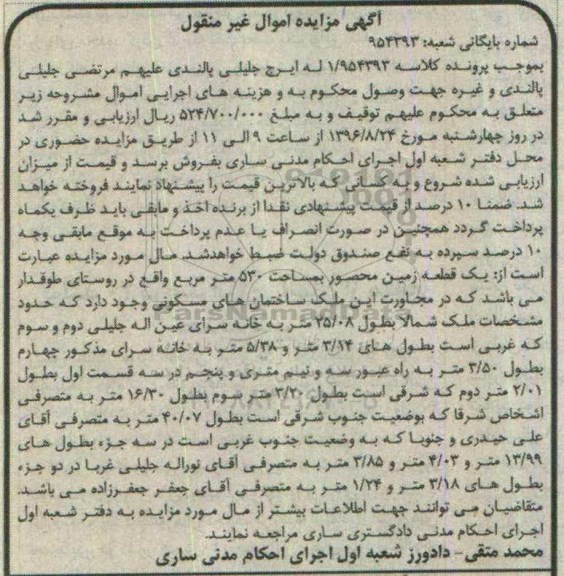 آگهی مزایده اموال غیر منقول
شماره بایگانی شعبه: ۹۵۴۳۹۳
بموجب پرونده کلاسه ۱/۹۵۴۳۹۳ له ایرج جلیلی پالندی علیهم مرتضی جلیلی
پالندی و غیره جهت وصول محکوم به و هزینه های اجرایی اموال مشروحه زیر
متعلق به محکوم علیهم توقیف و به مبلغ ۵۲۴/۷۰۰/۰۰۰ ریال ارزیابی و مقرر شد
در روز چهارشنبه مورخ ۱۳۹۶/۸/۲۴ از ساعت ۹ الی ۱۱ از طریق مزایده حضوری در
محل دفتر شعبه اول اجرای احکام مدنی ساری بفروش برسد و قیمت از میزان
ارزیابی شده شروع و به کسانی که بالاترین قیمت را پیشنهاد نمایند فروخته خواهد
شد. ضمنا ۱۰ درصد از قیمت پیشنهادی نقدا از برنده اخذ و مابقی باید ظرف یکماه
پرداخت گردد همچنین در صورت انصراف یا عدم پرداخت به موقع مابقی وجه
۱۰ درصد سپرده به نفع صندوق دولت ضبط خواهدشد. مال مورد مزایده عبارت
است از: یک قطعه زمین محصور بمساحت ۵۳۰ متر مربع واقع در روستای طوقدار
می باشد که در مجاورت این ملک ساختمان های مسکونی وجود دارد که حدود
مشخصات ملک شمالا بطول ۲۵/۰۸ متر به خانه سرای عین اله جلیلی دوم و سوم
که غربی است بطول های ۳/۱۴ متر و ۵/۳۸ متر به خانه سرای مذکور چهارم
بطول ۳/۵۰ متر به راه عبور سه و نیم متری و پنجم در سه قسمت اول بطول
۲/۰۱ متر دوم که شرقی است بطول ۳/۲۰ متر سوم بطول ۱۶/۳۰ متر به متصرفی
اشخاص شرقا که بوضعیت جنوب شرقی است بطول ۴۰/۰۷ متر به متصرفی آقای
علی حیدری و جنوبا که به وضعیت جنوب غربی است در سه جزء بطول های
۱۳/۹۹ متر و ۴/۰۳ متر و ۳/۸۵ متر به متصرفی آقای نوراله جلیلی غربا در دو جزء
بطول های ۳/۱۸ متر و ۱/۲۴ متر به متصرفی آقای جعفر جعفرزاده می باشد.
متقاضیان می توانند جهت اطلاعات بیشتر از مال مورد مزایده به دفتر شعبه اول
اجرای احکام مدنی دادگستری ساری مراجعه نمایند.
محمد متقی- دادورز شعبه اول اجرای احکام مدنی ساری
ParsNamadData